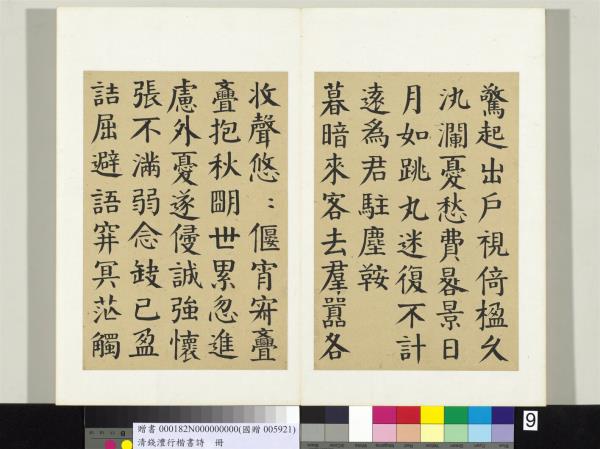 驚起出戶視倚楹久
汍瀾憂愁費晷景日
月如跳丸迷復不計
遠為君駐塵鞍
暮暗來客去羣囂各
收聲悠〻偃宵寂亹
亹抱秋朙世累忽進
慮外憂遂侵誠強懷
張不滿弱念缺已盈
詰屈避語穽冥茫觸
贈書 000182N000000000(國贈 005921)
清錢灃行楷書詩 冊
9